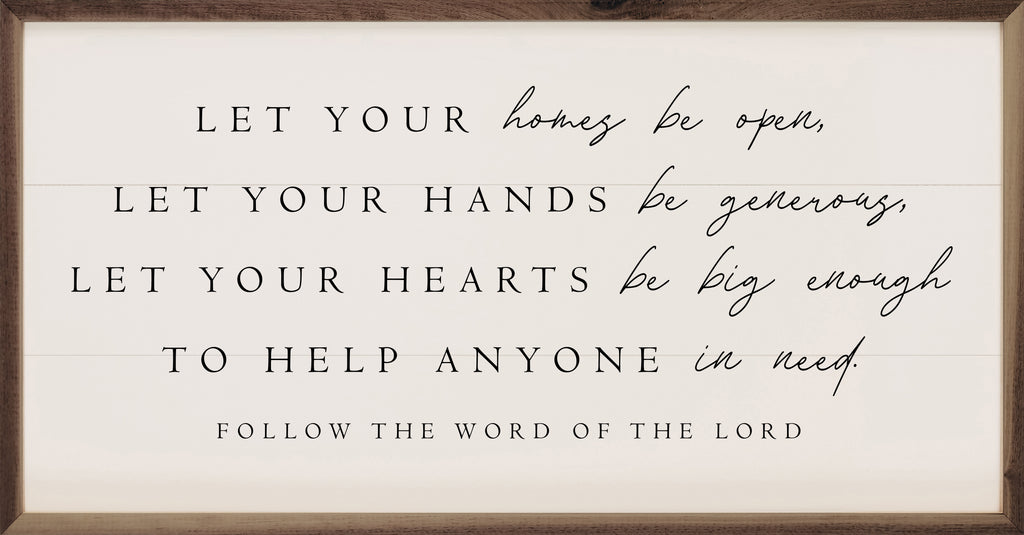 LET YOUR homes be open,
LET YOUR HANDS be generous,
LET YOUR HEARTS be big enough
TO HELP ANYONE in need.
FOLLOW THE WORD OF THE LORD